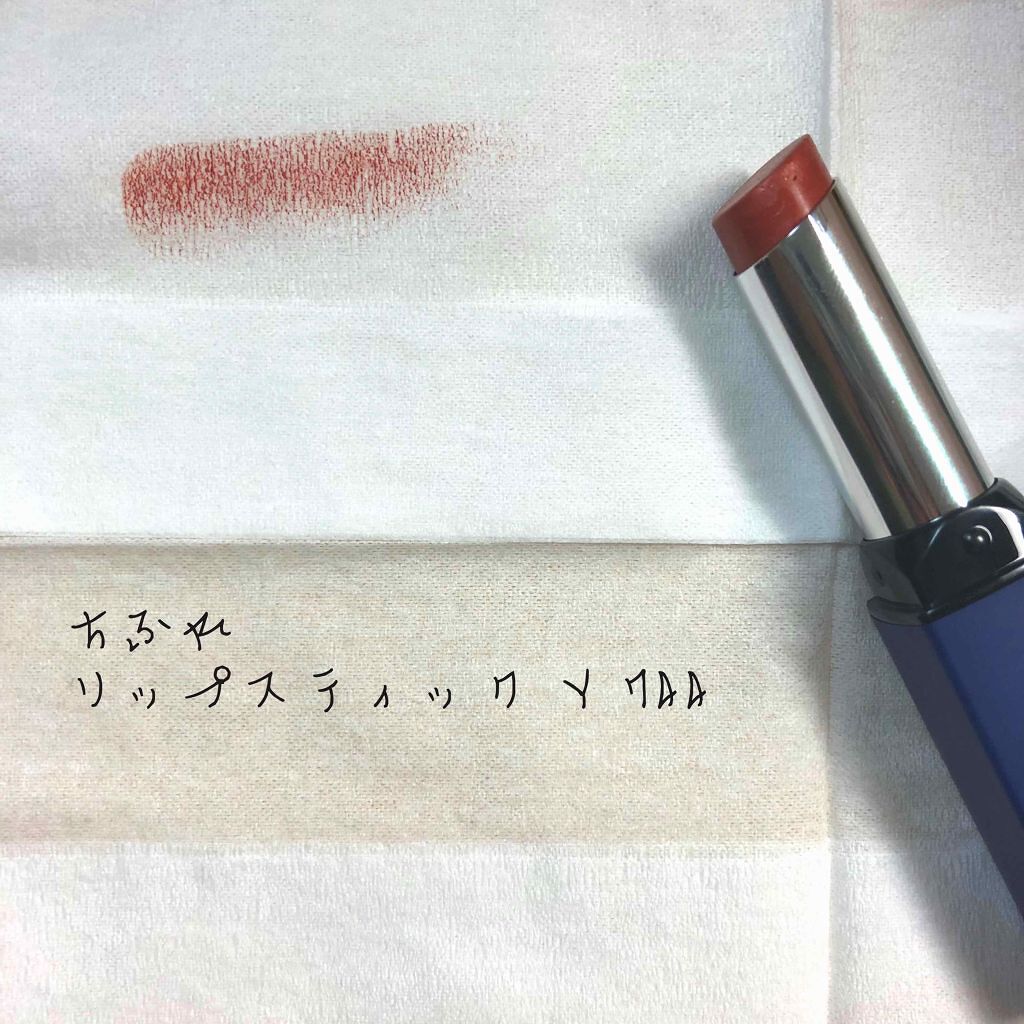 ちふれ
リップスティック Y